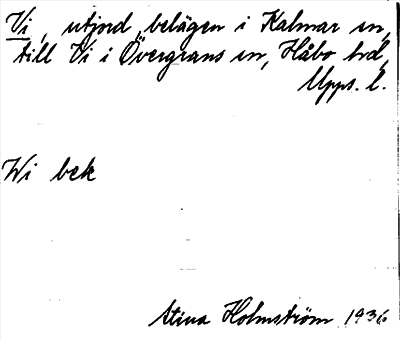 Vi, utjord, belägen i Kalmar sn,
till Vi i Övergrans sn, Håbo hd,
Upps. l.
Wi bek
Stina Holmström 1936